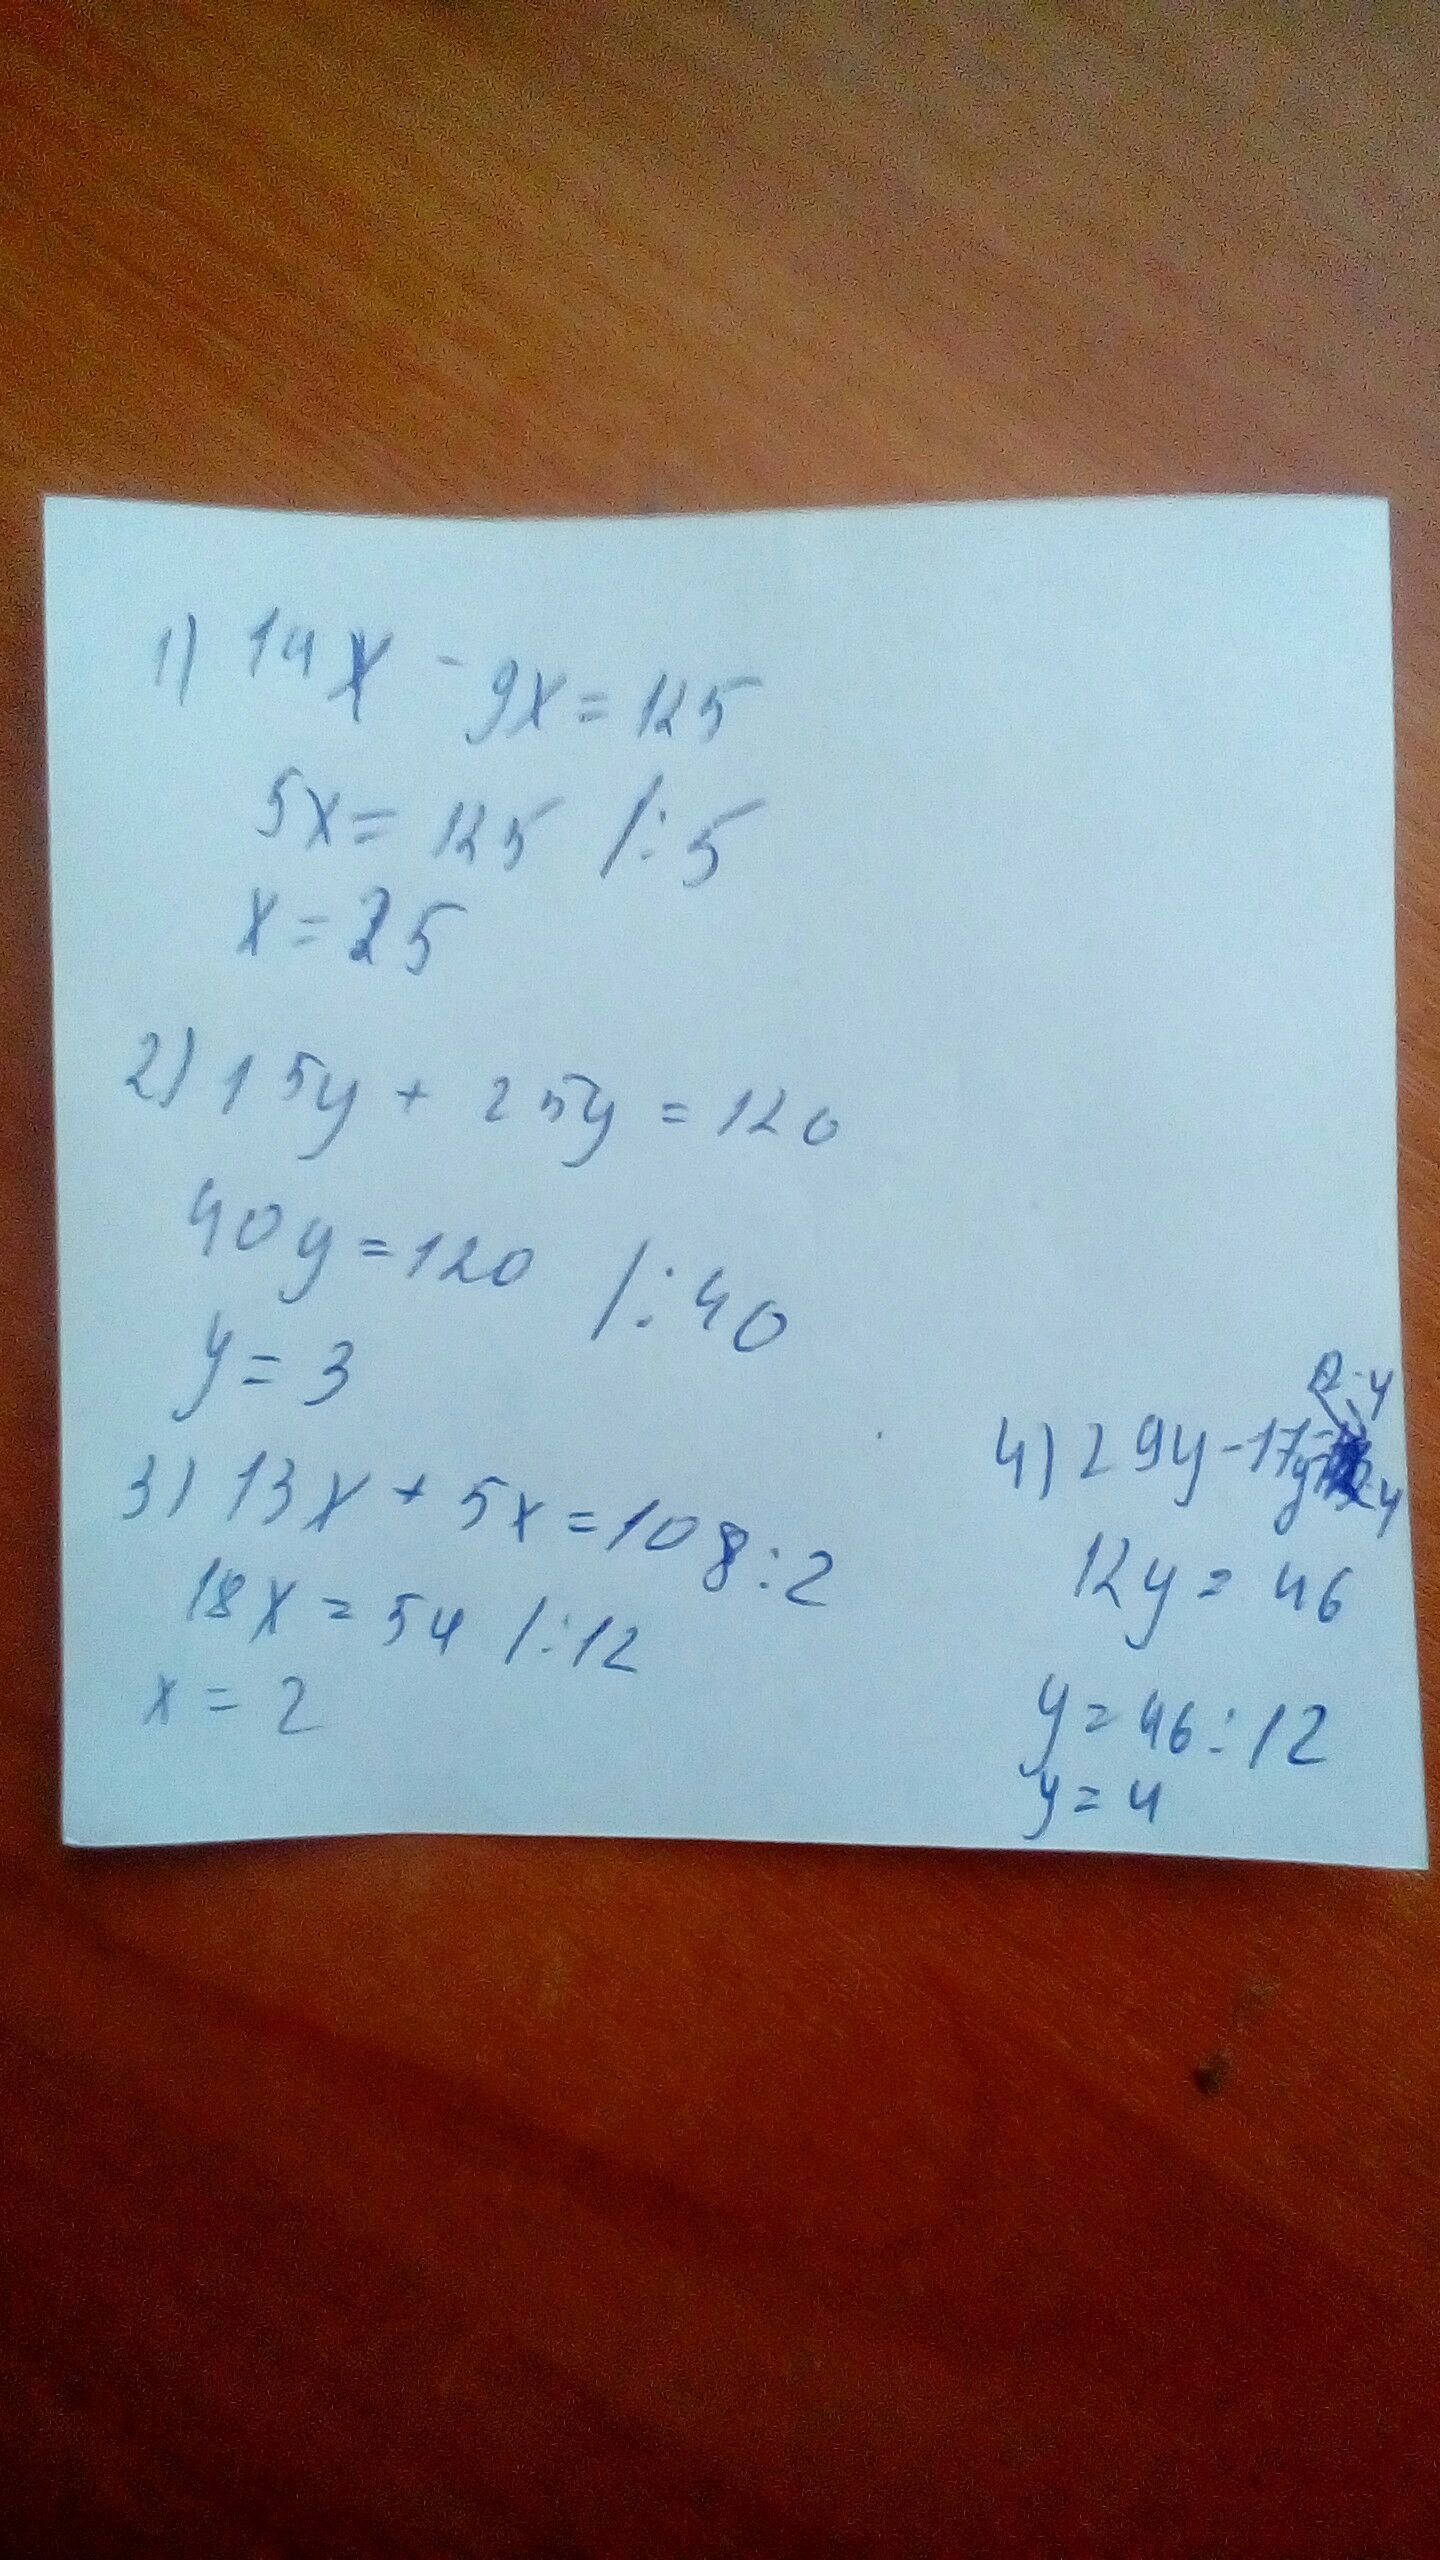 1) 14x - 9x = 125
5x = 125 /:5
x = 25
2) 15y + 25y = 120
40y = 120 /:40
y = 3
3) 13x + 5x = 108:2
18x = 54 /:12
x = 2
4) 29y - 17y
12y = 46
y = 46:12
y = 4